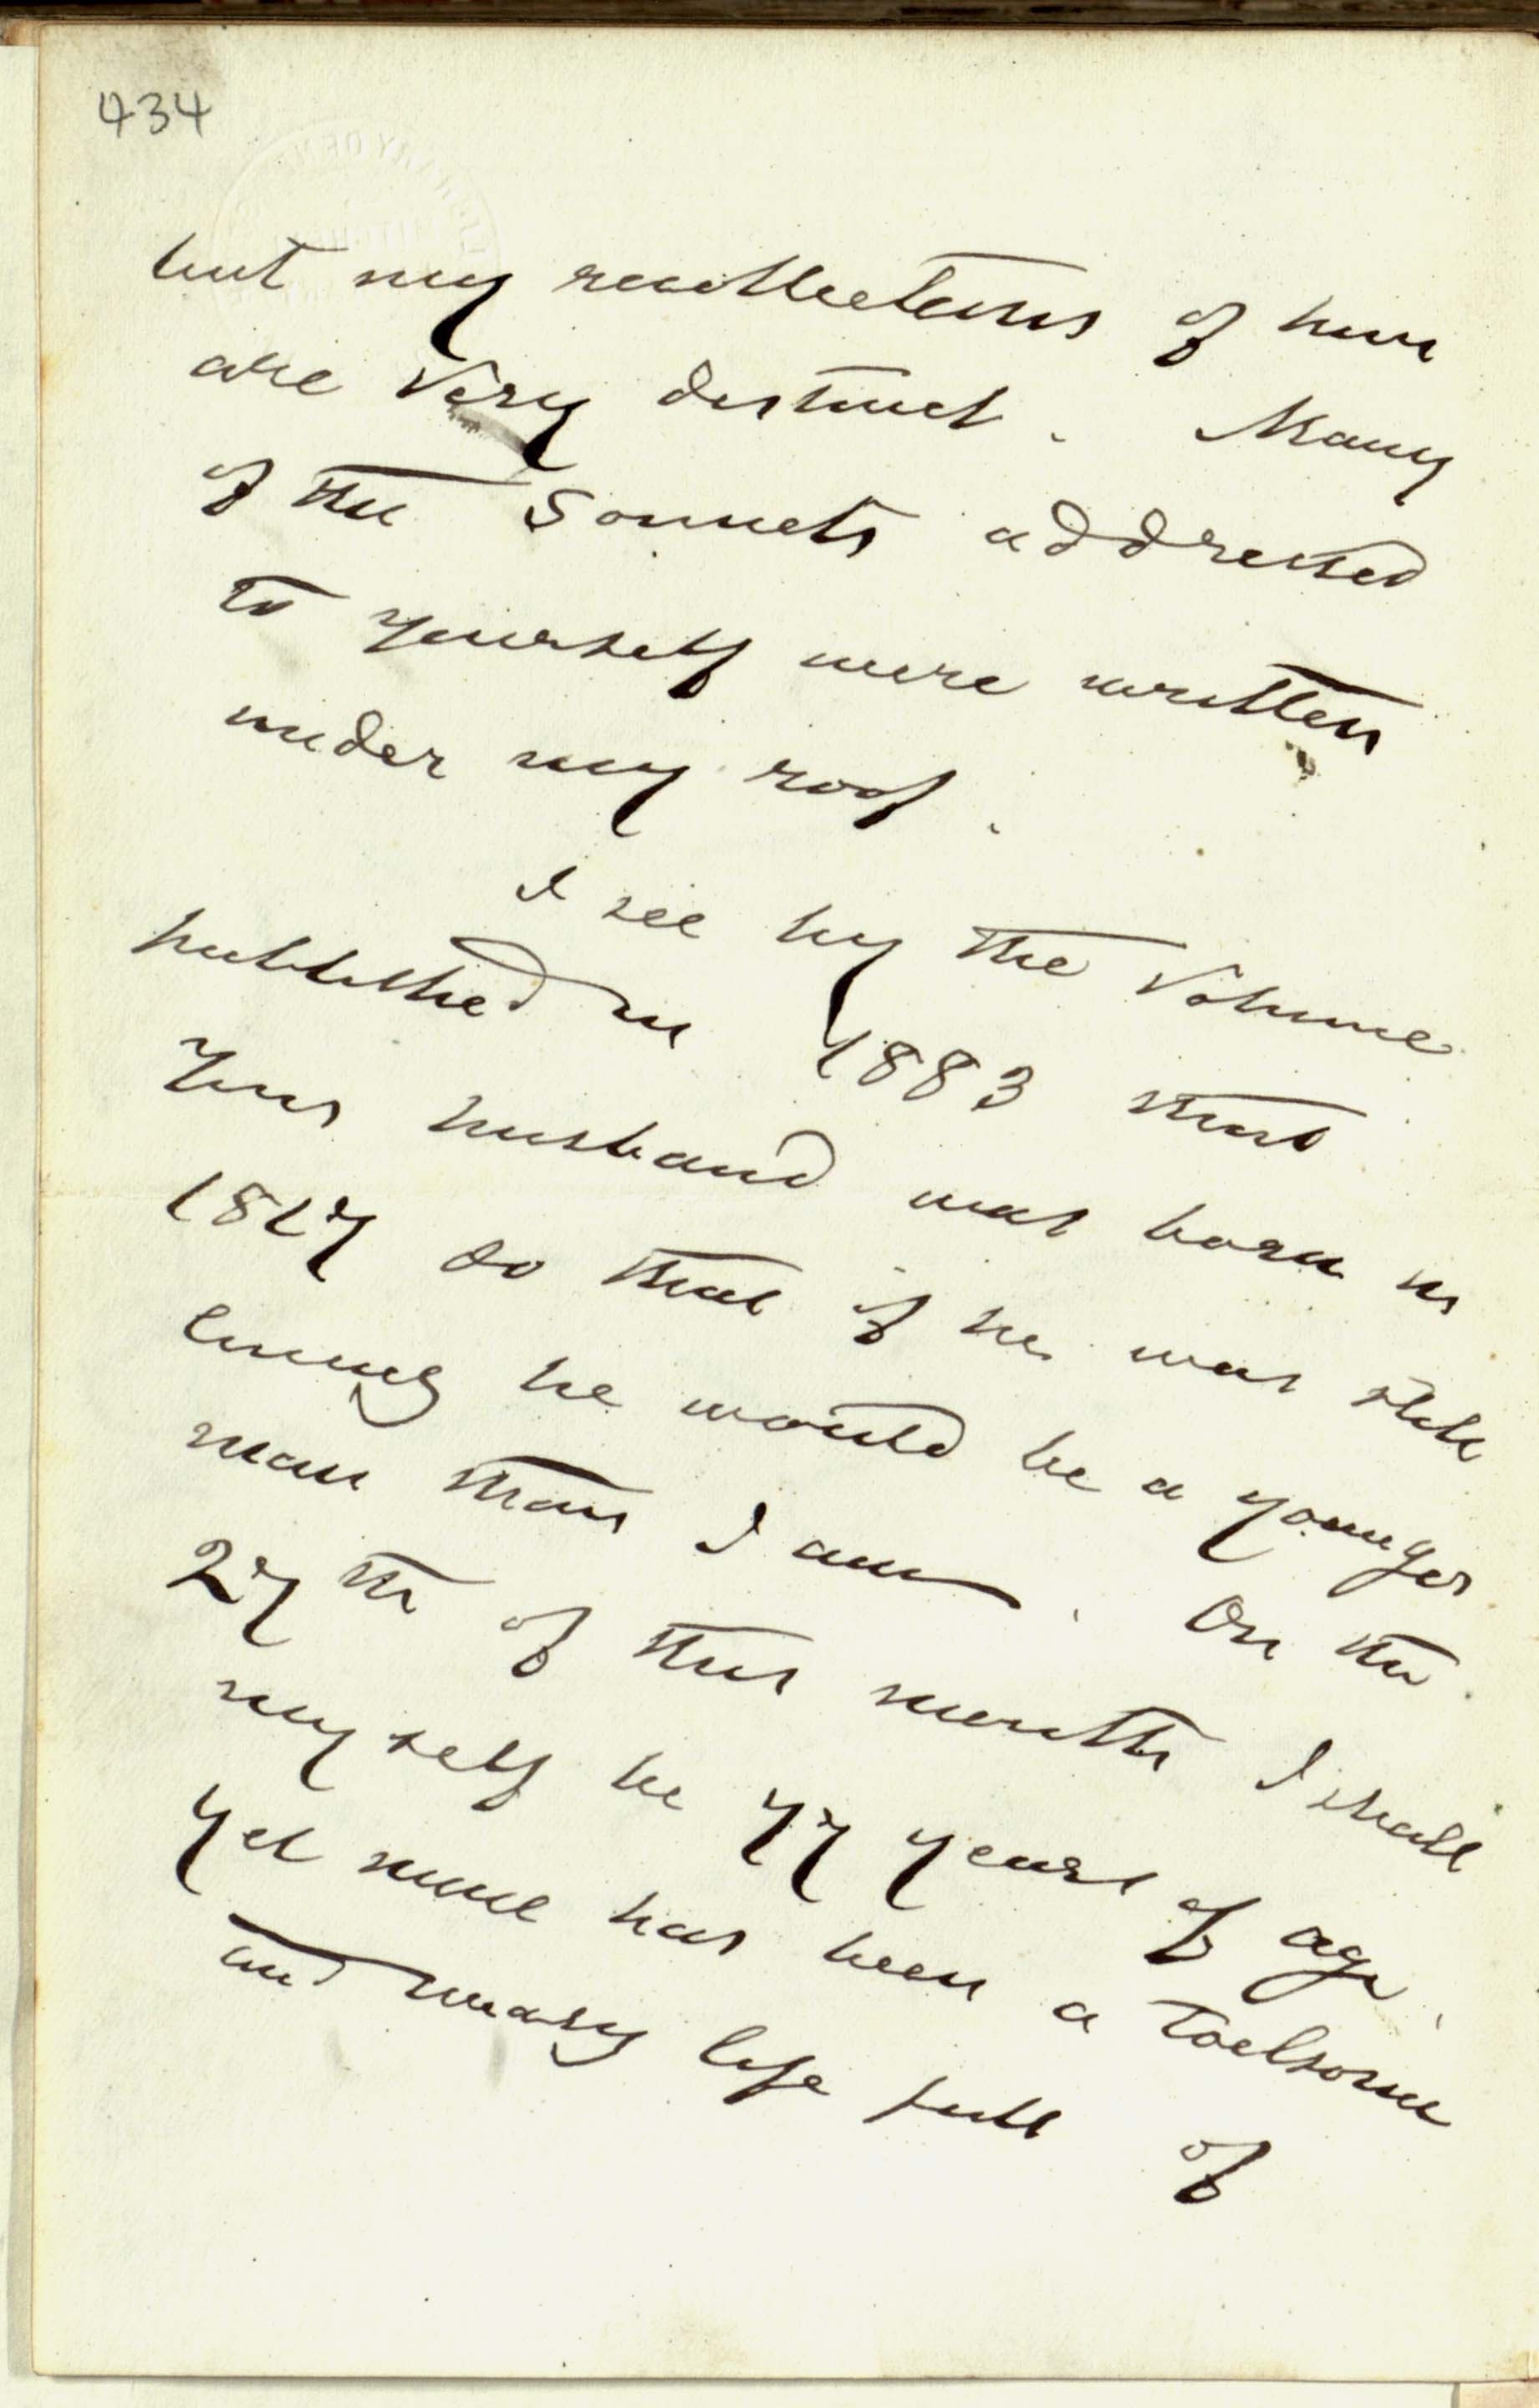 434
but my recollections of him
are very distinct. Many
of the Sonnets addressed
to yourself were written
under my roof.
I see by the Volume
published in 1883 that
your husband was born in
1817 so that if he was still
living he would be a younger
man than I am. On the
27th of this month I shall
myself be 77 years of age.
Yet mine has been a toilsome
and weary life full of